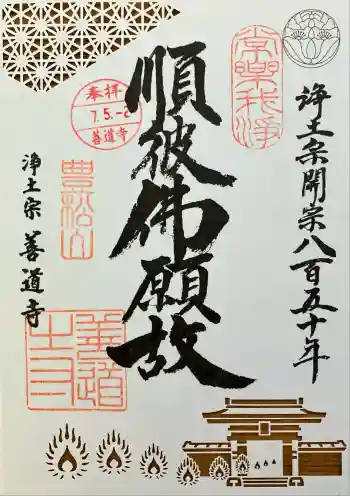 浄土宗開宗八百五十年
常樂我浄
順彼佛願故
奉拝
7.5.-2
善導寺
豊松山
浄土宗 善導寺
善導寺